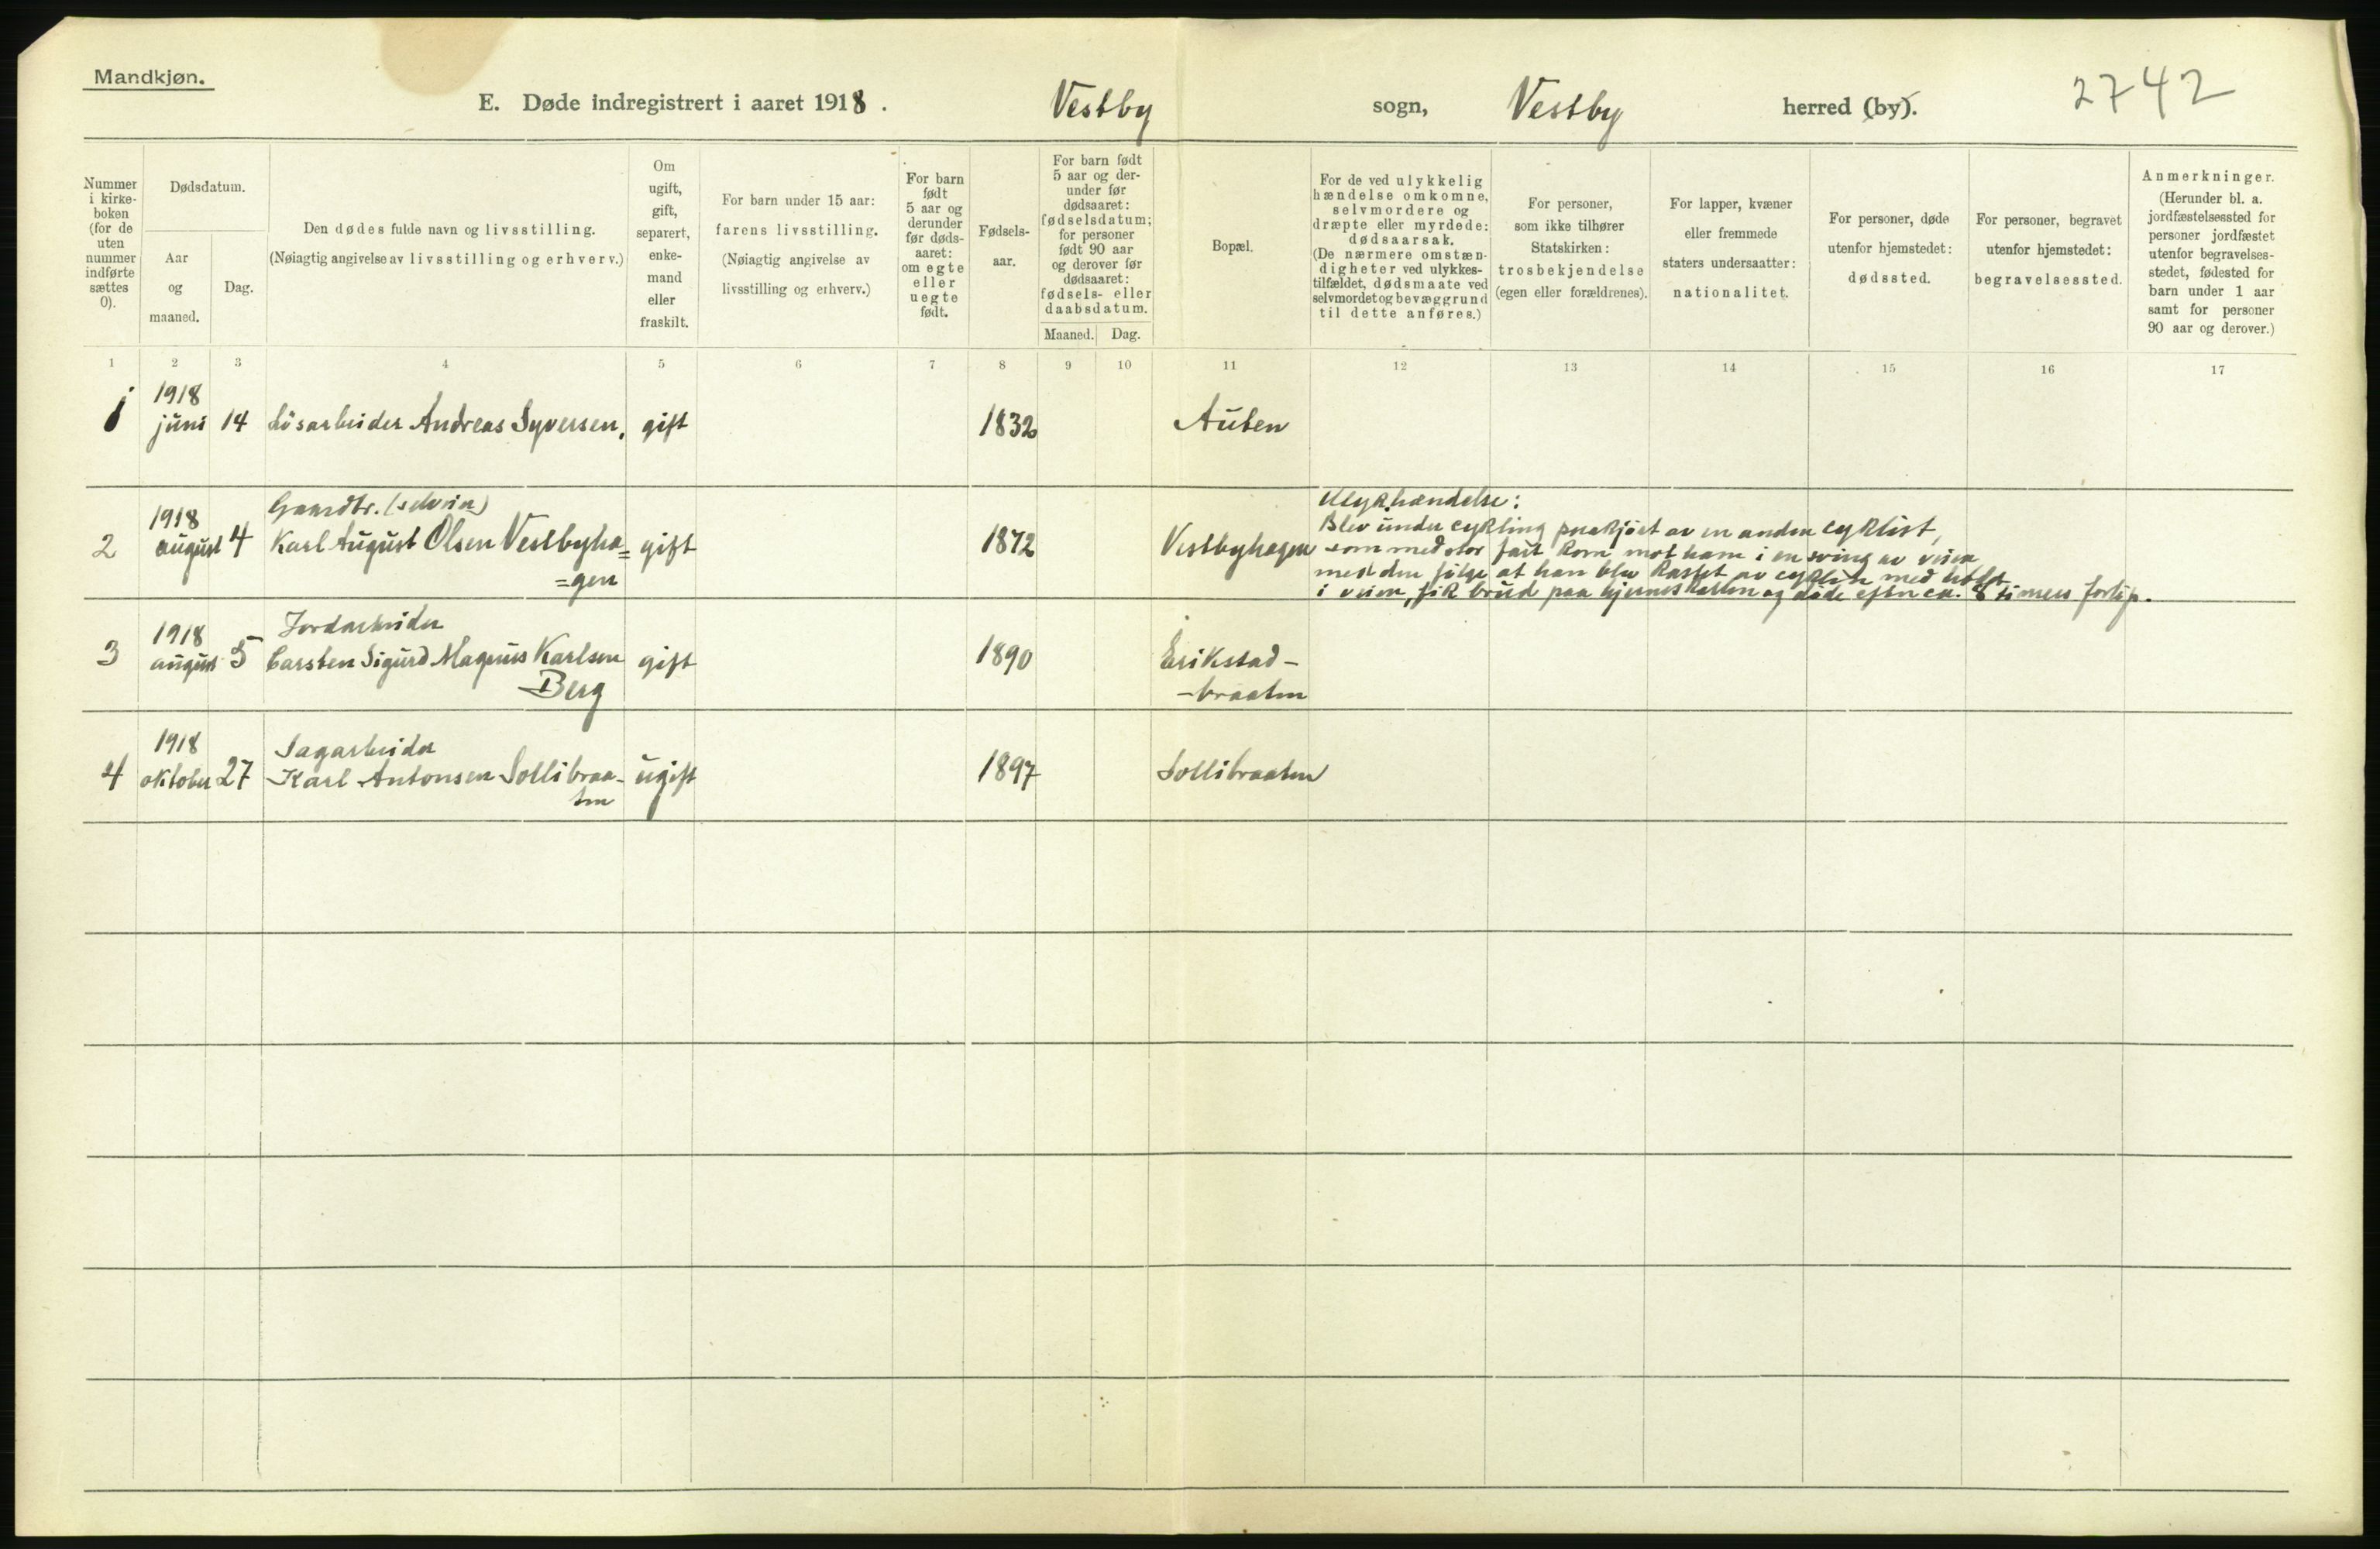 Mandkjøn.
E. Døde indregistrert i aaret 1918. Vestby sogn, Vestby herred (by). 2742
Nummer
i kirke-
boken
(for de
uten
nummer
indførte
sættes
0).
Dødsdatum.
Aar
og
maaned.
Dag.
Den dødes fulde navn og livsstilling.
(Nøiagtig angivelse av livsstilling og erhverv.)
Om
ugift,
gift,
separert,
enke-
mand
eller
fraskilt.
For barn under 15 aar:
farens livsstilling.
(Nøiagtig angivelse av
livsstilling og erhverv.)
For barn
født
5 aar og
derunder
før døds-
aaret:
om egte
eller
uegte
født.
Fødsels-
aar.
For barn født
5 aar og der-
under før
dødsaaret:
fødselsdatum;
for personer
født 90 aar
og derover før
dødsaaret:
fødsels- eller
daabsdatum.
Maaned. Dag.
Bopæl.
For de ved ulykkelig
hændelse omkomne,
selvmordere og
dræpte eller myrdede:
dødsaarsak.
(De nærmere omstæn-
digheter ved ulykkes-
tilfældet, dødsmaate ved
selvmordet og bevæggrund
til dette anføres.)
For personer,
som ikke tilhører
Statskirken:
trosbekjendelse
(egen eller forældrenes).
For lapper, kvæner
eller fremmede
staters undersaatter:
nationalitet.
For personer, døde
utenfor hjemstedet:
dødssted.
For personer, begravet
utenfor hjemstedet:
begravelsessted.
Anmerkninger.
(Herunder bl. a.
jordfæstelsessted for
personer jordfæstet
utenfor begravelses-
stedet, fødested for
barn under 1 aar
samt for personer
90 aar og derover.)
1 2 3 4 5 6 7 8 9 10 11 12 13 14 15 16 17
1918
1 juni 14 Løsarbeider Andreas Syversen, gift 1832 Auten
1918 Gaardbr. (selveier)
2 august 4 Karl August Olsen Vestbyha= gift 1872 Vestbyhagen
=gen
Ulykhændelse:
Blev under cykling paakjørt av en anden cyklist,
som med stor fart kom mot ham i en sving av veien
med den følge at han blev kastet av cyklen med hodet
i veien, fik brud paa hjerneskallen og døde efter ca. 8 timers forløp.
1918 Jordarbeider
3 august 5 Carsten Sigurd Magnus Karlsen gift 1890 Erikstad-
Berg -braaten
1918 Sagarbeider
4 oktober 27 Karl Antonsen Sollibraa- ugift 1897 Sollibraaten
ten